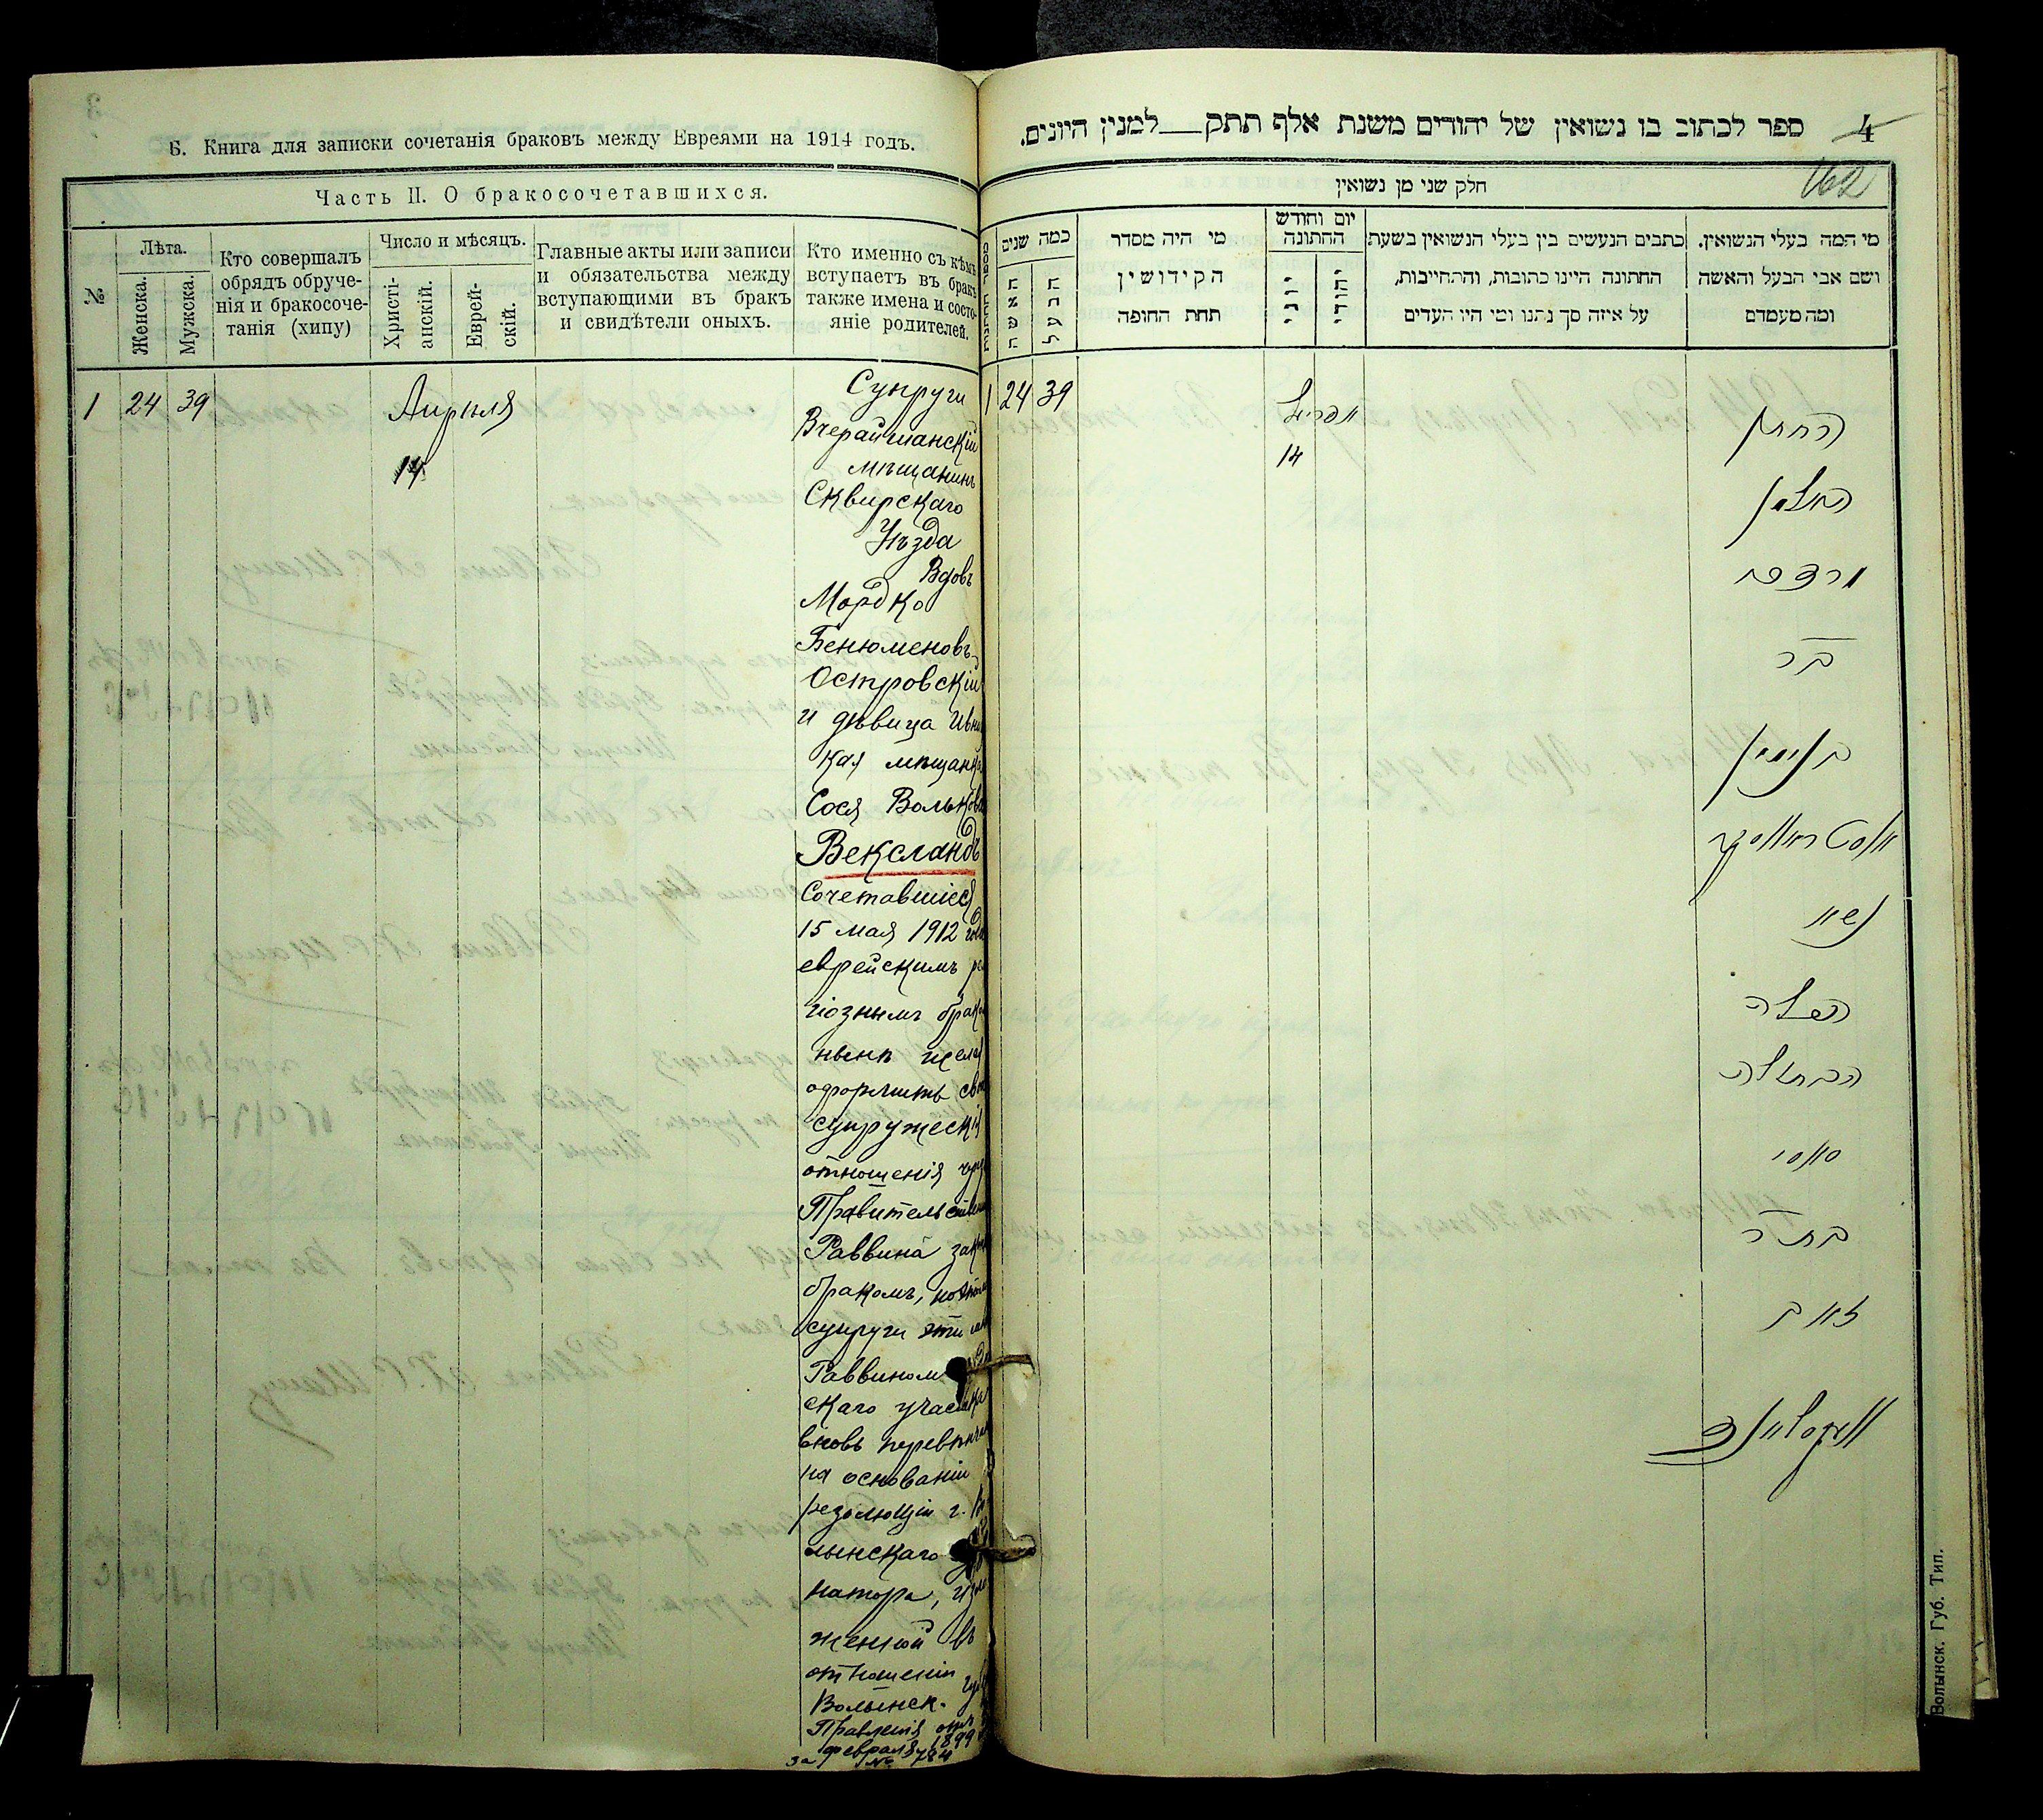 Б. Книга для записки сочетанія браковъ между Евреями на 1914 годъ.
Часть II. О бракосочетавшихся.
№
Лѣта.
Женска.
Мужска.
Кто совершалъ
обрядъ обруче-
нія и бракосоче-
танія (хипу)
Число и мѣсяцъ.
Христі-
анскій.
Еврей-
скій.
Главные акты или записи
и обязательства между
вступающими въ бракъ
и свидѣтели оныхъ.
Кто именно съ кѣмъ
вступаетъ въ бракъ
также имена и состо-
яніе родителей.
1 24 39
Апрѣля
14
Супруги
Вчерайшанскій
мѣщанинъ
Сквирскаго
Уѣзда
Вдовъ
Мордко
Бенюменовъ
Островскій
и дѣвица Ивни
кая мѣщанка
Сося Вольков
Вексландъ
Сочетавшіеся
15 мая 1912 года
еврейскимъ ре
гіознымъ брако
нынѣ желая
оформить сво
супружескія
отношенія чрез
Правительствен
Раввина зак
бракомъ, поэтому
супруги эти
Раввиномъ
скаго участка
вновь перевѣнчан
на основаніи
резолюціи г. Во
лынскаго
натора, изло
женной въ
отношеніи
Волынск. Губ
Правленія отъ
февраля 1899
за № 784
4 ספר לכתוב בו נשואין של יהודים משנת אלף תתק למנין היונים.
162
חלק שני מן נשואין
מספר החתונות
כמה שנים
האשה
הבעל
מי היה מסדר
הקידושין
תחת החופה
יום וחודש
החתונה
יוני
יהודי
כתבים הנעשים בין בעלי הנשואין בשעת
החתונה היינו כתובות, והתחייבות,
על איזה סך נתנו ומי היו העדים
מי המה בעלי הנשואין.
ושם אבי הבעל והאשה
ומה מעמדם
1 24 39
אפריל
14
החתן
האלמן
מרדכי
בר
בנימין
אוסטראווסקי
נשוא
הכלה
הבתולה
סאסי
בת ר
זאב
וועקסלאנד
Волынск. Губ. Тип.